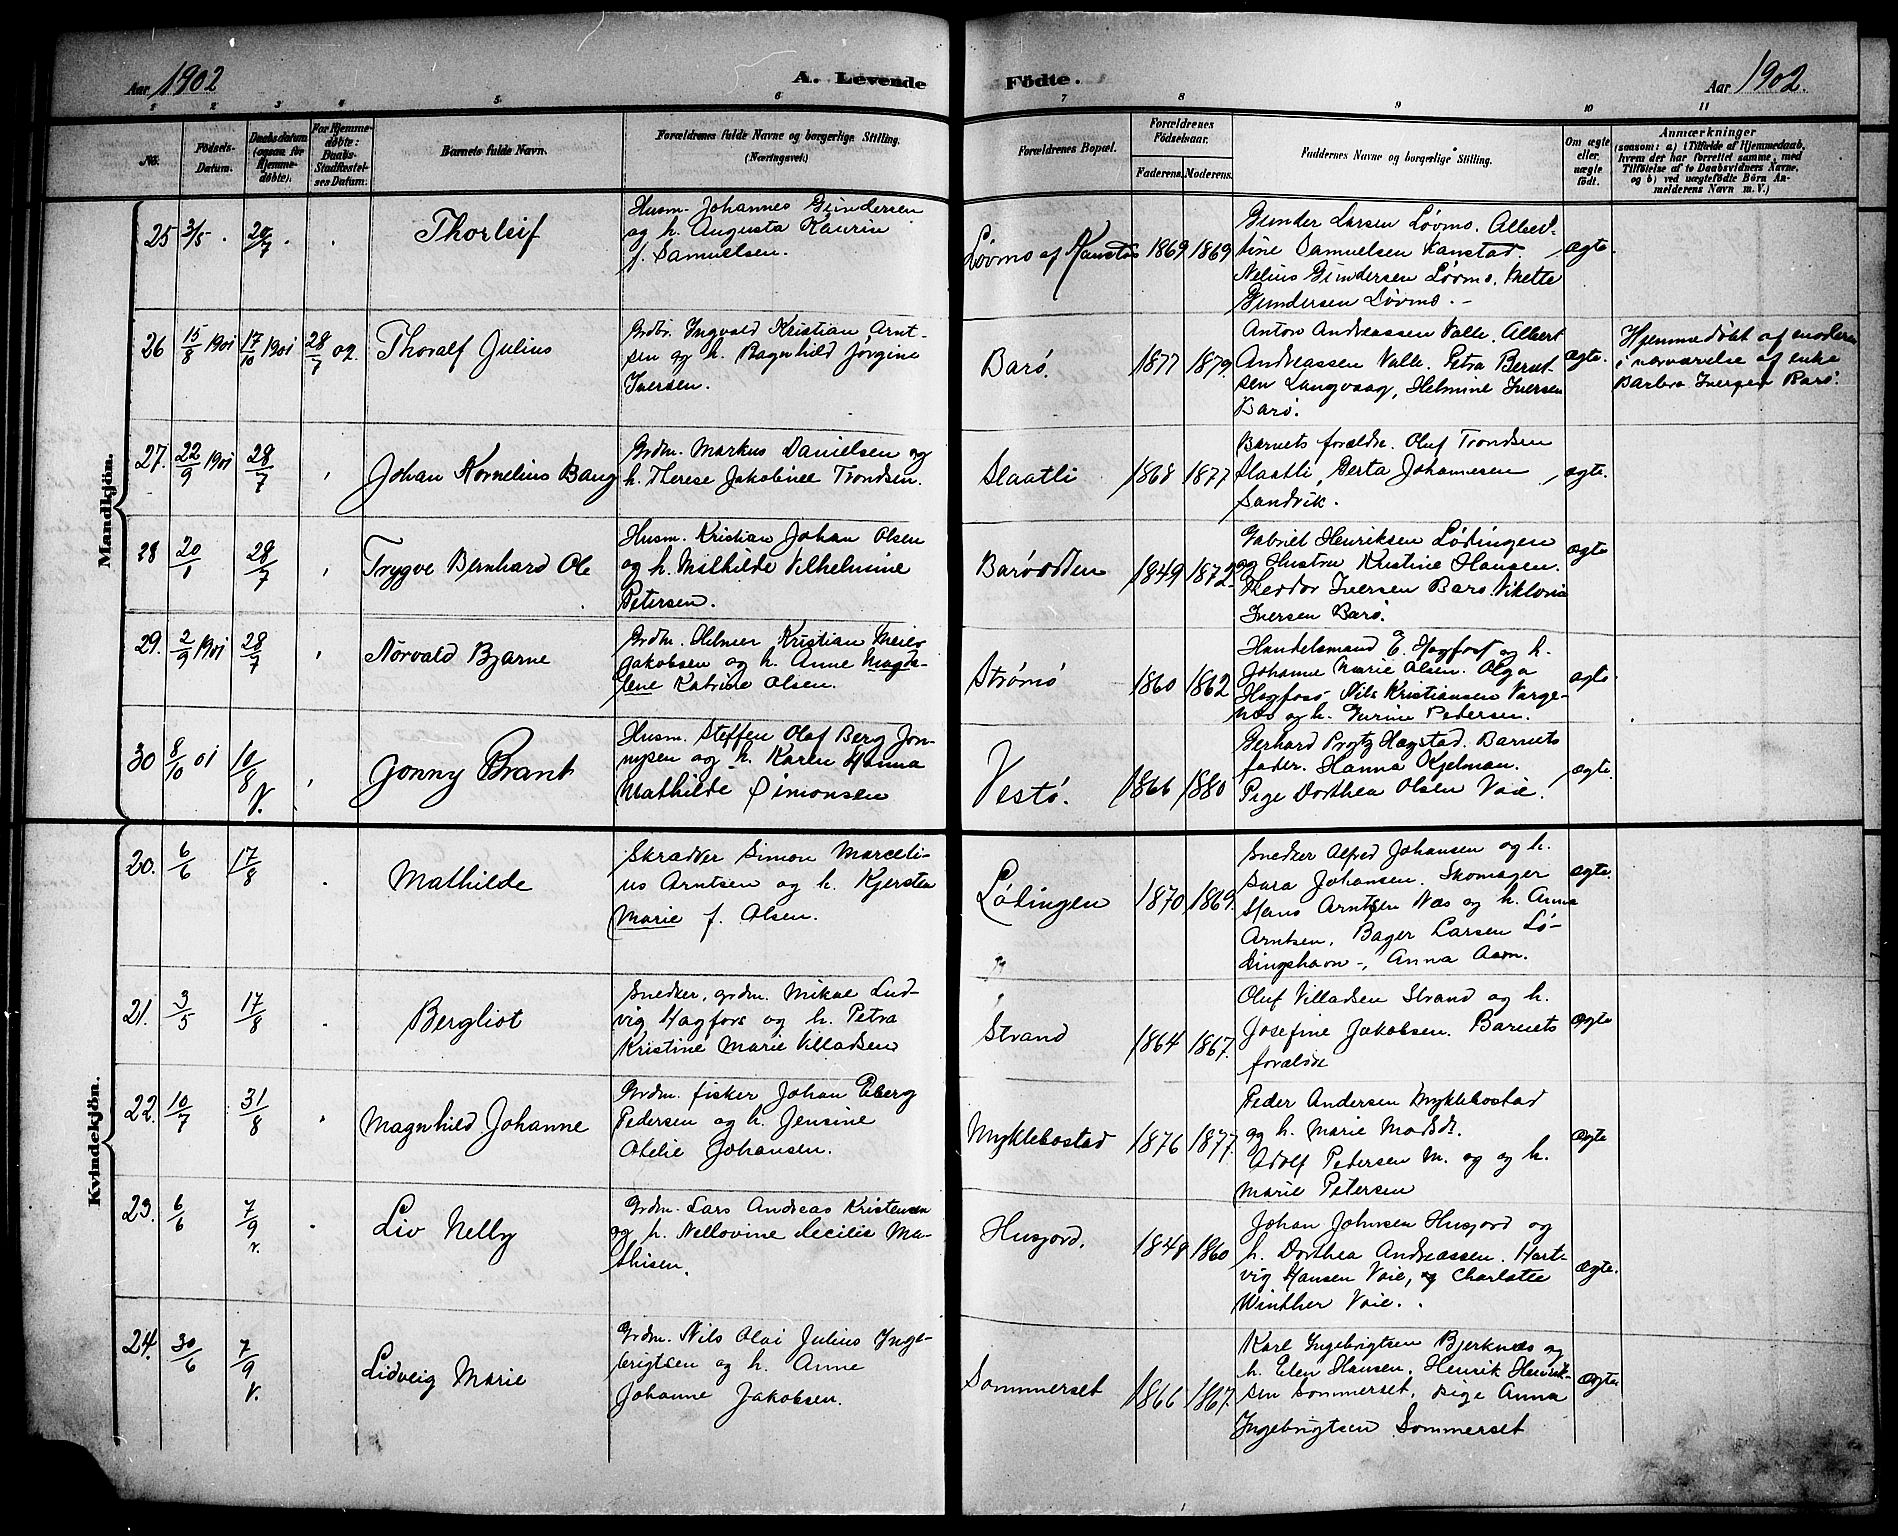 Aar 1902
A. Levende
Födte.
Aar 1902.
1 2 3 4 5. 6 7 8 9 10 11
No.
Födsels-
Datum.
Daabsdatum
(ogsaa for
Hjemme-
döbte).
For Hjemme-
döbte:
Daabs-
Stadfæstel-
ses Datum.
Barnets fulde Navn.
Forældrenes fulde Navne og borgerlige Stilling.
(Næringsvei.)
Forældrenes Bopæl.
Forældrenes
Födselsaar.
Faderens.
Moderens.
Faddernes Navne og borgerlige Stilling.
Om ægte
eller
uægte
født.
Anmærkninger
(saasom: a) i Tilfælde af Hjemmedaab,
hvem der har forrettet samme, med
Tilföielse af to Daabsvidners Navne,
og b) ved uægtefödte Börn An-
melderens Navn m. V.)
Mandkjön.
25 3/5 . 20/7 . .
Thorleif
Husm. Johannes Gundersen
og h. Augusta Kaurin
f. Samuelsen.
Løvmo af Kanstad 1869 1869
Gunder Larsen Løvmo. Albert-
tine Samuelsen Kanstad.
Nelius Gundersen Løvmo. Mette
Gundersen Løvmo. -
ægte.
26 15/8 1901 17/10 1901 28/7 02.
Thoralf Julius
Grdbr. Ingvald Kristian Arnt-
sen og h. Ragnhild Jørgine
Iversen.
Barø. 1877 1879.
Anton Andreassen Valle. Albert
Andreassen Valle. Petra Bernt-
sen Langvaag, Helmine Iversen
Barø.
ægte.
Hjemmedøbt af moderen
i nærværelse af enke
Barbra Iversen Barø.
27. 22/9 1901 28/7
Johan Kornelius Baug
Grdm. Markus Danielsen og
h. Therese Jakobine Trondsen.
Slaatli 1868 1877
Barnets forældre. Oluf Trondsen
Slaatli, Berta Johannesen
Sandvik.
ægte.
28 20/1 28/7
Trygve Bernhard Ole
Husm. Kristian Johan Olsen
og h. Mathilde Vilhelmine
Petersen.
Barøodden 1849 1872.
Gabriel Henriksen Lødingen
og Hustru Kristine Hansen.
Theodor Iversen Barø. Viktoria
Iversen Barø.
ægte
29. 2/9 1901 28/7
Norvald Bjarne
Grdm. Helmer Kristian Meier
Jakobsen og h. Anne Magda-
lene Katrine Olsen.
Strømø 1860 1862
Handelsmand E. Hagfors og h.
Johanne Marie Olsen. Olga
Hagfors. Nils Kristiansen Varge-
næs og h. Gurine Pedersen.
ægte
30 8/10 01 10/8 V.
Gonny Brant
Husm. Steffen Olaf Berg Jon-
nysen og h. Karen Hanna
Mathilde Simonsen
Vestø. 1866 1880
Gerhard Prytz Hagstad. Barnets
fader. Hanna Kjelman.
Pige Dorthea Olsen Voie.
ægte.
Kvindekjön.
20. 6/6 17/8
Mathilde
Skrædder Simon Marceli-
us Arntsen og h. Kjersten
Marie f. Olsen.
Lødingen 1870 1869.
Snedker Alfred Johansen og h.
Sara Johansen. Skomager
Hans Arntsen Næs og h. Anna
Arntsen. Bager Larsen Lø-
dingshavn -, Anna Aam.
ægte.
21. 3/5 17/8
Bergliot
Snedker, grdm. Mikal Lud-
vig Hagfors og h. Petra
Kristine Marie Villadsen
Strand 1864 1867.
Oluf Villadsen Strand og h.
Josefine Jakobsen. Barnets
forældre
ægte
22. 10/7 31/8
Magnhild Johanne
Grdm. fisker Johan Eberg
Pedersen og h. Jensine
Otelie Johansen.
Myklebostad 1876 1877.
Peder Andersen Myklebostad
og h. Marie Madsdr.
Adolf Petersen M. og og h.
Marie Petersen
ægte
23. 6/6 7/9 v.
Liv Nelly
Grdm. Lars Andreas Kristensen
og h. Nellovine Cecilie Ma-
thisen.
Husjord. 1848 1860
Johan Johnsen Husjord og
h. Dorthea Andreassen. Hart-
vig Hansen Voie, og Charlotte
Winther Voie.
ægte.
24. 30/6 7/9 V.
Lidveig Marie
Grdm. Nils Olai Julius Inge-
brigtsen og h. Anne
Johanne Jakobsen.
Sommerset 1866 1867.
Karl Ingebrigtsen Bjerknæs og
h. Elen Hansen. Henrik Henrik-
sen Sommerset. Pige Anna
Ingebrigtsen Sommerset
ægte